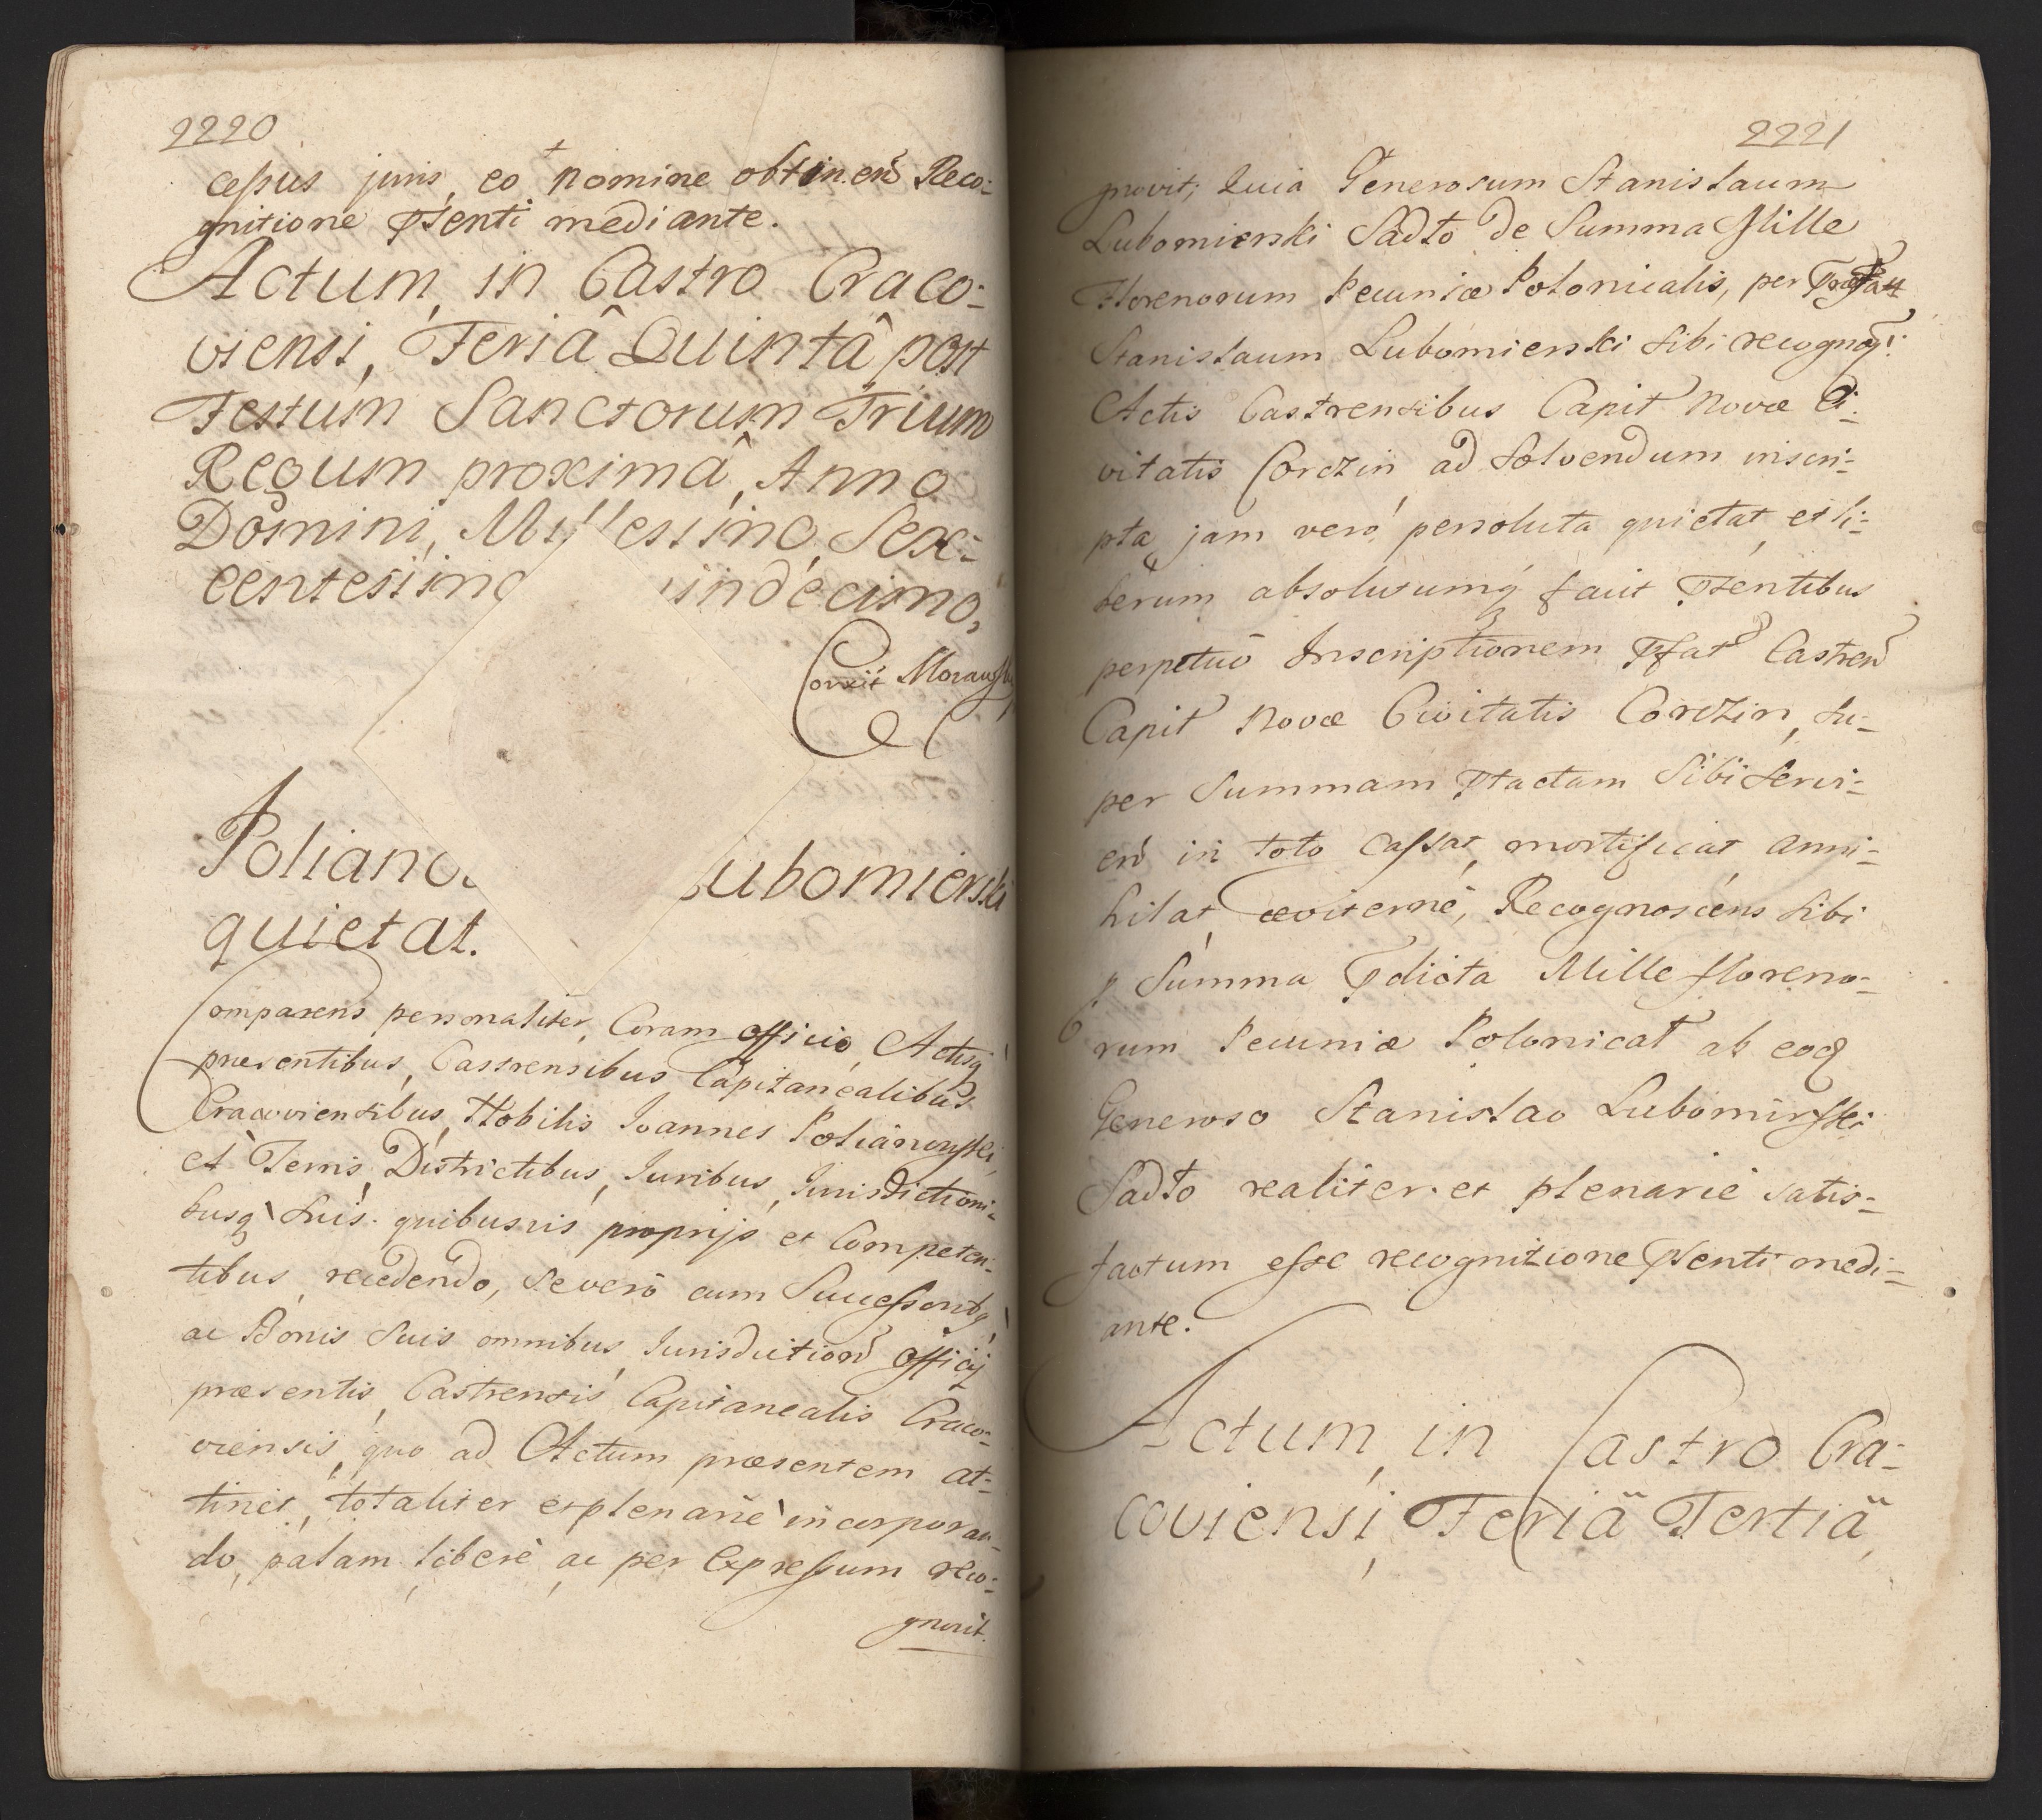 2220
cessus juris, eo nomine obtinen̄ Reco:
gnitione p̄senti mediante.
Actum, in Castro Craco:
viensi, Feriâ Quintâ post
Festum Sanctorum Trium
Regum proximâ, Anno
Domini, Millesimo, Sex:
centesimo indecimo,
Correxit
Poliano ubomierski
quietat.
Comparens personaliter, Coram officio, Actisq
præsentibus, Castrensibus Capitanealibus
Cracoviensibus, Nobilis Joannes Polianowski,
et Terris, Districtibus, Juribus, Jurisdictioni:
busq suis quibusvis proprijs et Competen:
tibus recedendo, se verò cum Successoribq
ac Bonis suis omnibus Jurisdiction̄ officij
præsentis, Castrensis Capitanealis Craco:
viensis, quo ad Actum præsentem at:
tinet, totaliter et plenariè incorporan:
do, palam liberè ac per expressum reco:
gnovit.
2221
gnovit; Quia Generosum Stanislaum
Lubomierski Sadto de Summa Mille
Florenorum Pecuniæ Polonicalis, per
Stanislaum Lubomierski sibi recognoṽ:
Actis Castrensibus Capit Novæ Ci:
vitatis Corczin ad solvendum inscri:
pta, jam verò persoluta quietat, et li:
berum absolutumq facit p̄sentibus
perpetuò Inscriptionem p̄fat Castren̄
Capit Novæ Civitatis Corczin, su:
per Summam p̄tactam sibi servi:
en̄ in toto cassat, mortificat anni:
hilat æviternè, Recognoscens sibi
p Summa p̄dicta Mille floreno:
rum Pecuniæ Polonicat ab eodq
Generoso Stanislao Lubomirski
Sadto realiter et plenariè satis:
factum esse recognitione p̄senti medi:
ante.
Actum, in Castro Cra:
coviensi, Feriâ Tertiâ,